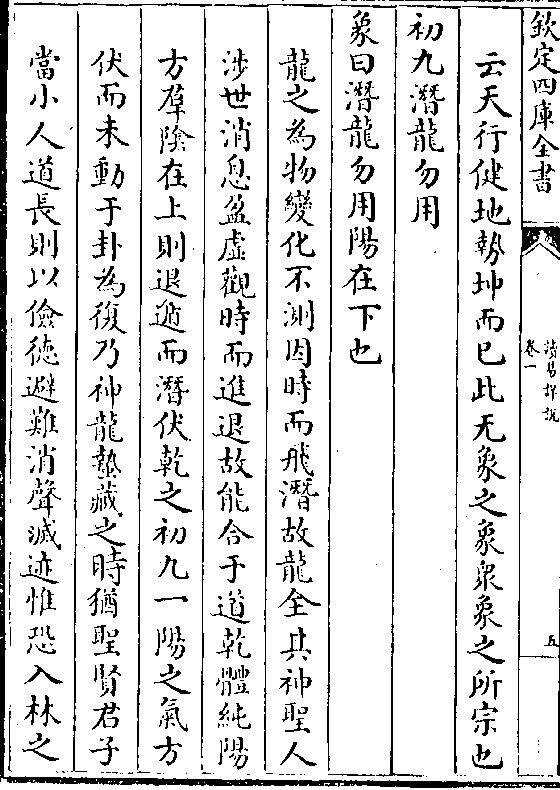 欽定四庫全書
讀易詳說
卷一
五
云天行健地勢坤而已此无象之象衆象之所宗也
初九潛龍勿用
象曰潛龍勿用陽在下也
龍之為物變化不測因時而飛潛故龍全其神聖人
涉世消息盈虛觀時而進退故能合于道乾體純陽
方羣陰在上則退遁而潛伏乾之初九一陽之氣方
伏而未動于卦為復乃神龍蟄藏之時猶聖賢君子
當小人道長則以儉徳避難消聲滅迹惟恐入林之